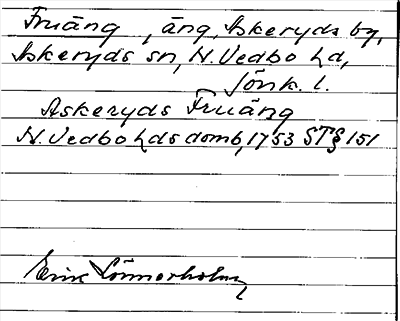 Fruäng, äng, Askeryds by,
Askeryds sn, N. Vedbo hd,
Jönk. l.
Askeryds Fruäng
N. Vedbo hds domb, 1753 ST§ 151
Erik Lönnerholm